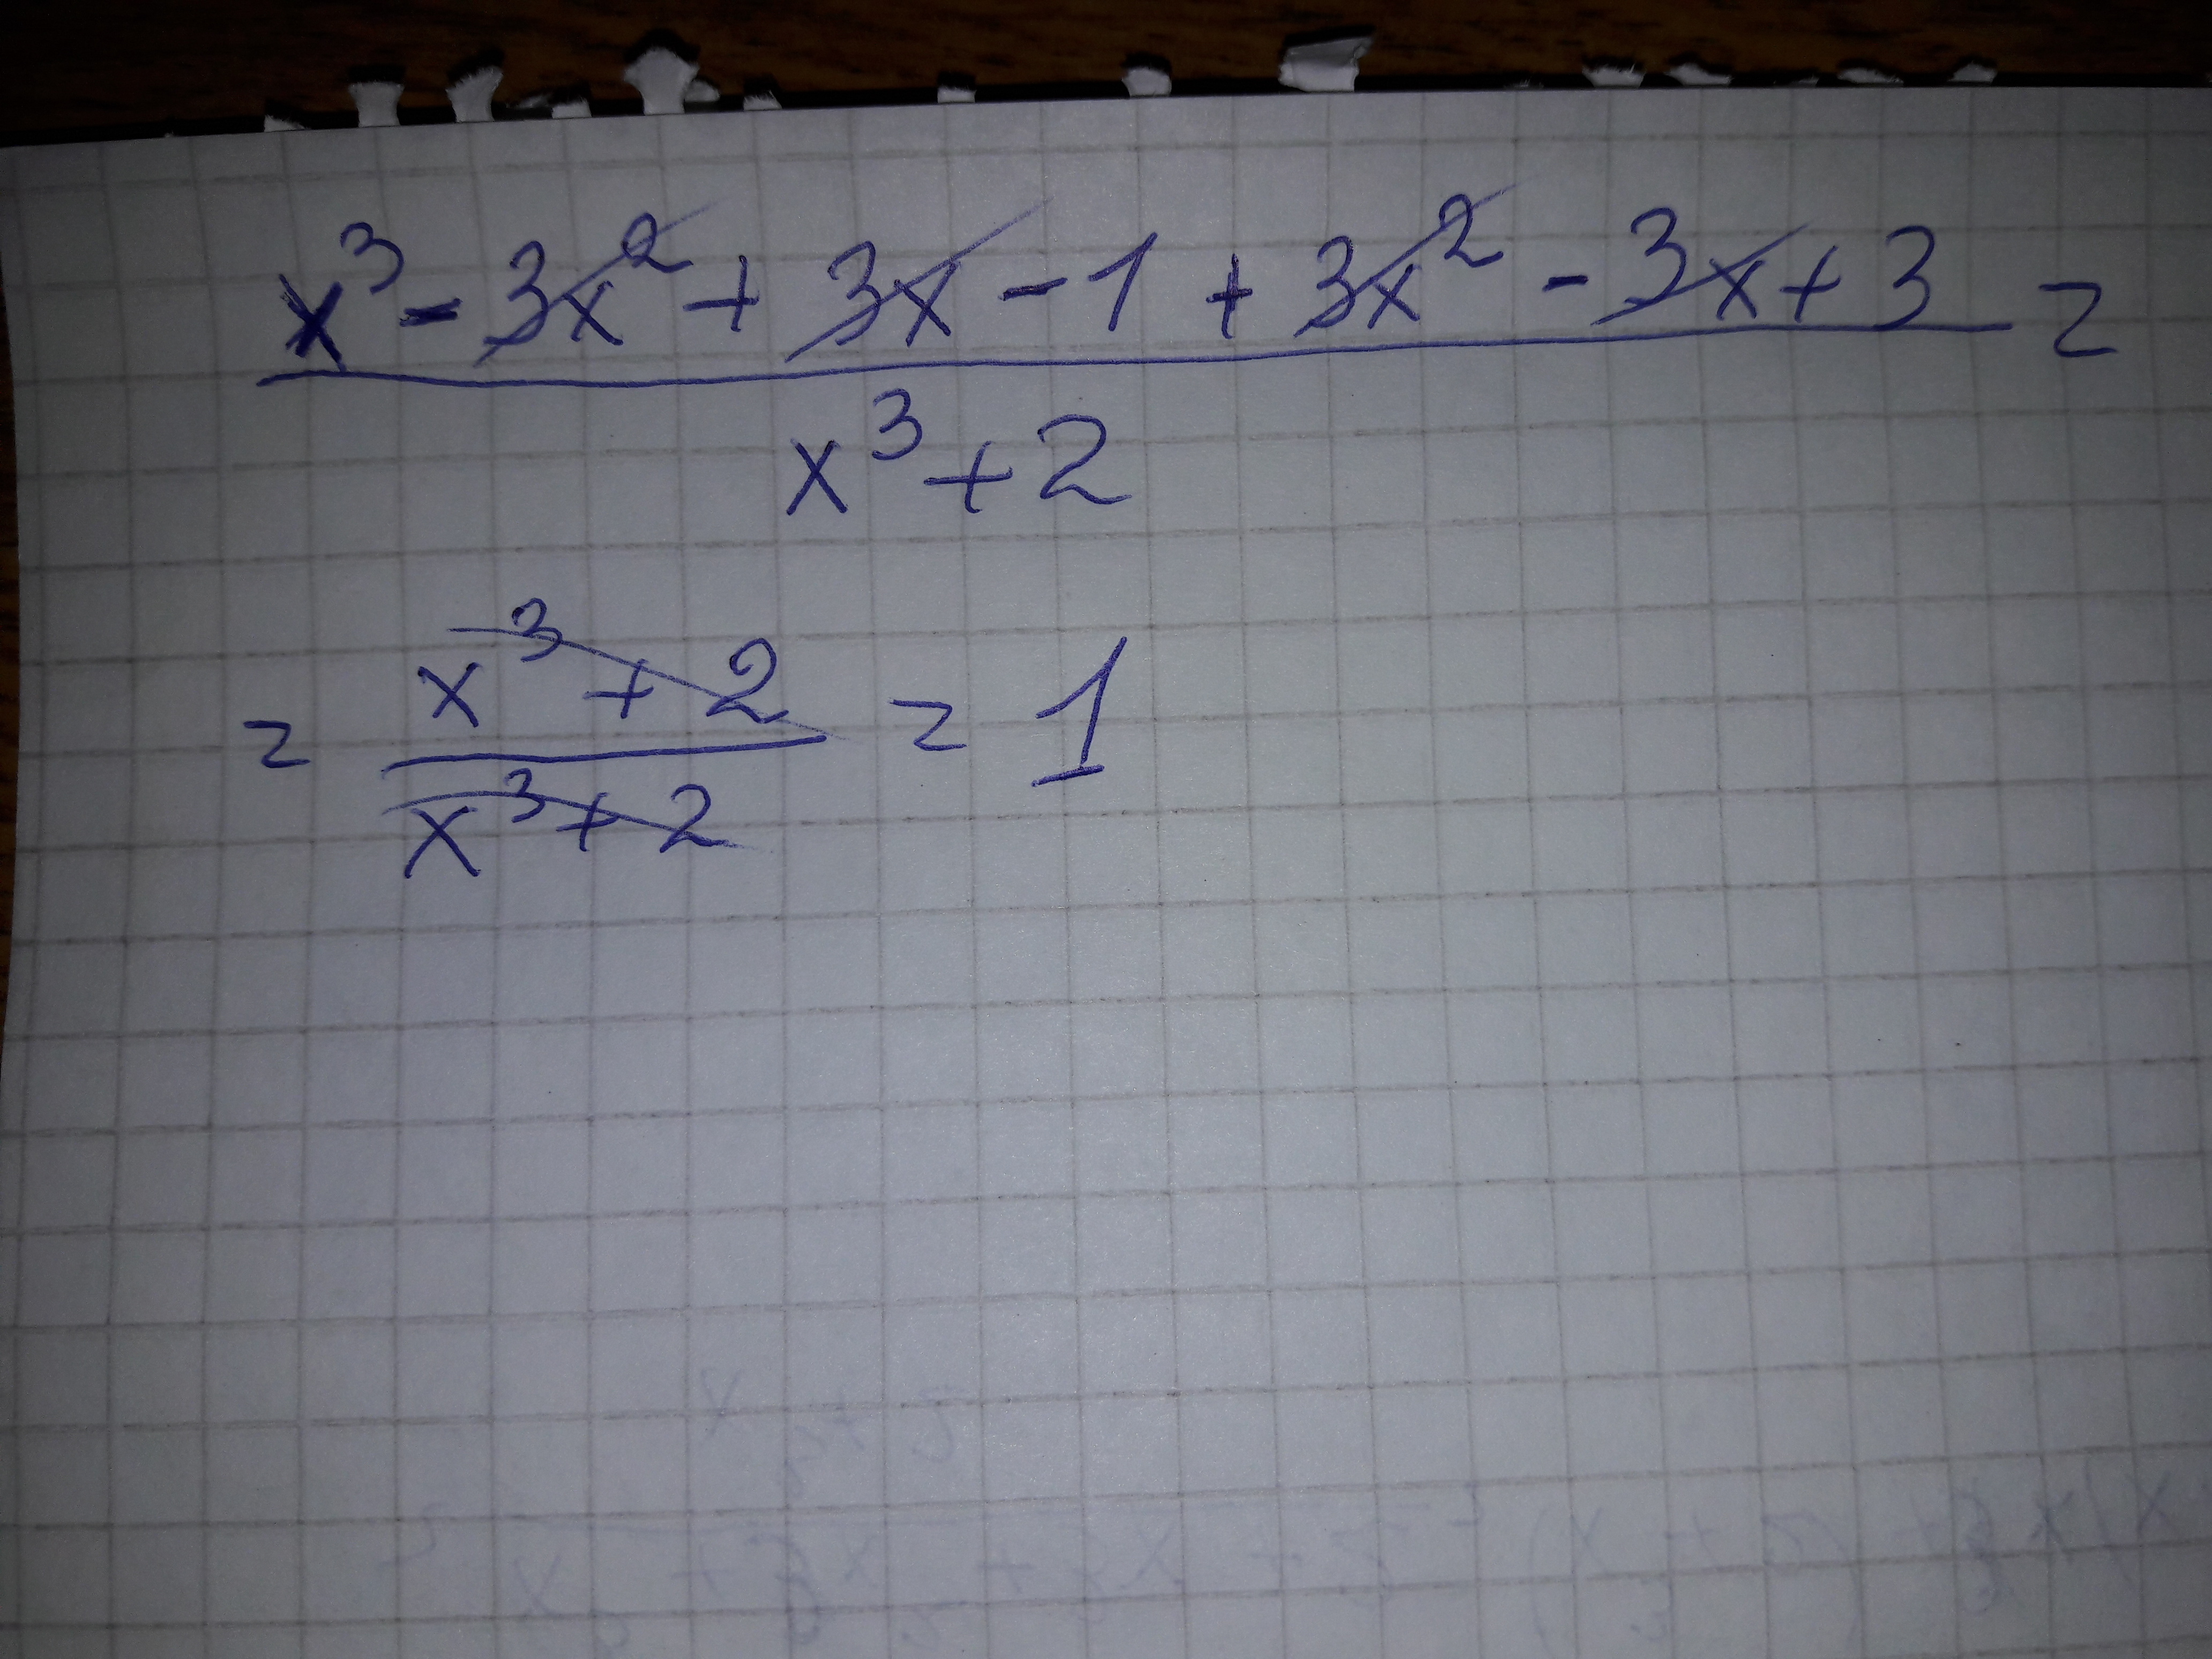 x³ - 3x² + 3x - 1 + 3x² - 3x + 3 =
x³ + 2
= x³ + 2 = 1
x³ + 2